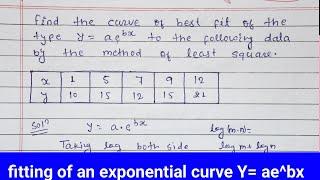 Find the curve of best fit of the
type Y = aeᵇˣ to the following data
by the method of least square.
x 1 5 7 9 12
y 10 15 12 15 21
Solⁿ y = a·eᵇˣ log(m·n)=
Taking log both side log m + log n
fitting of an exponential curve Y= ae^bx